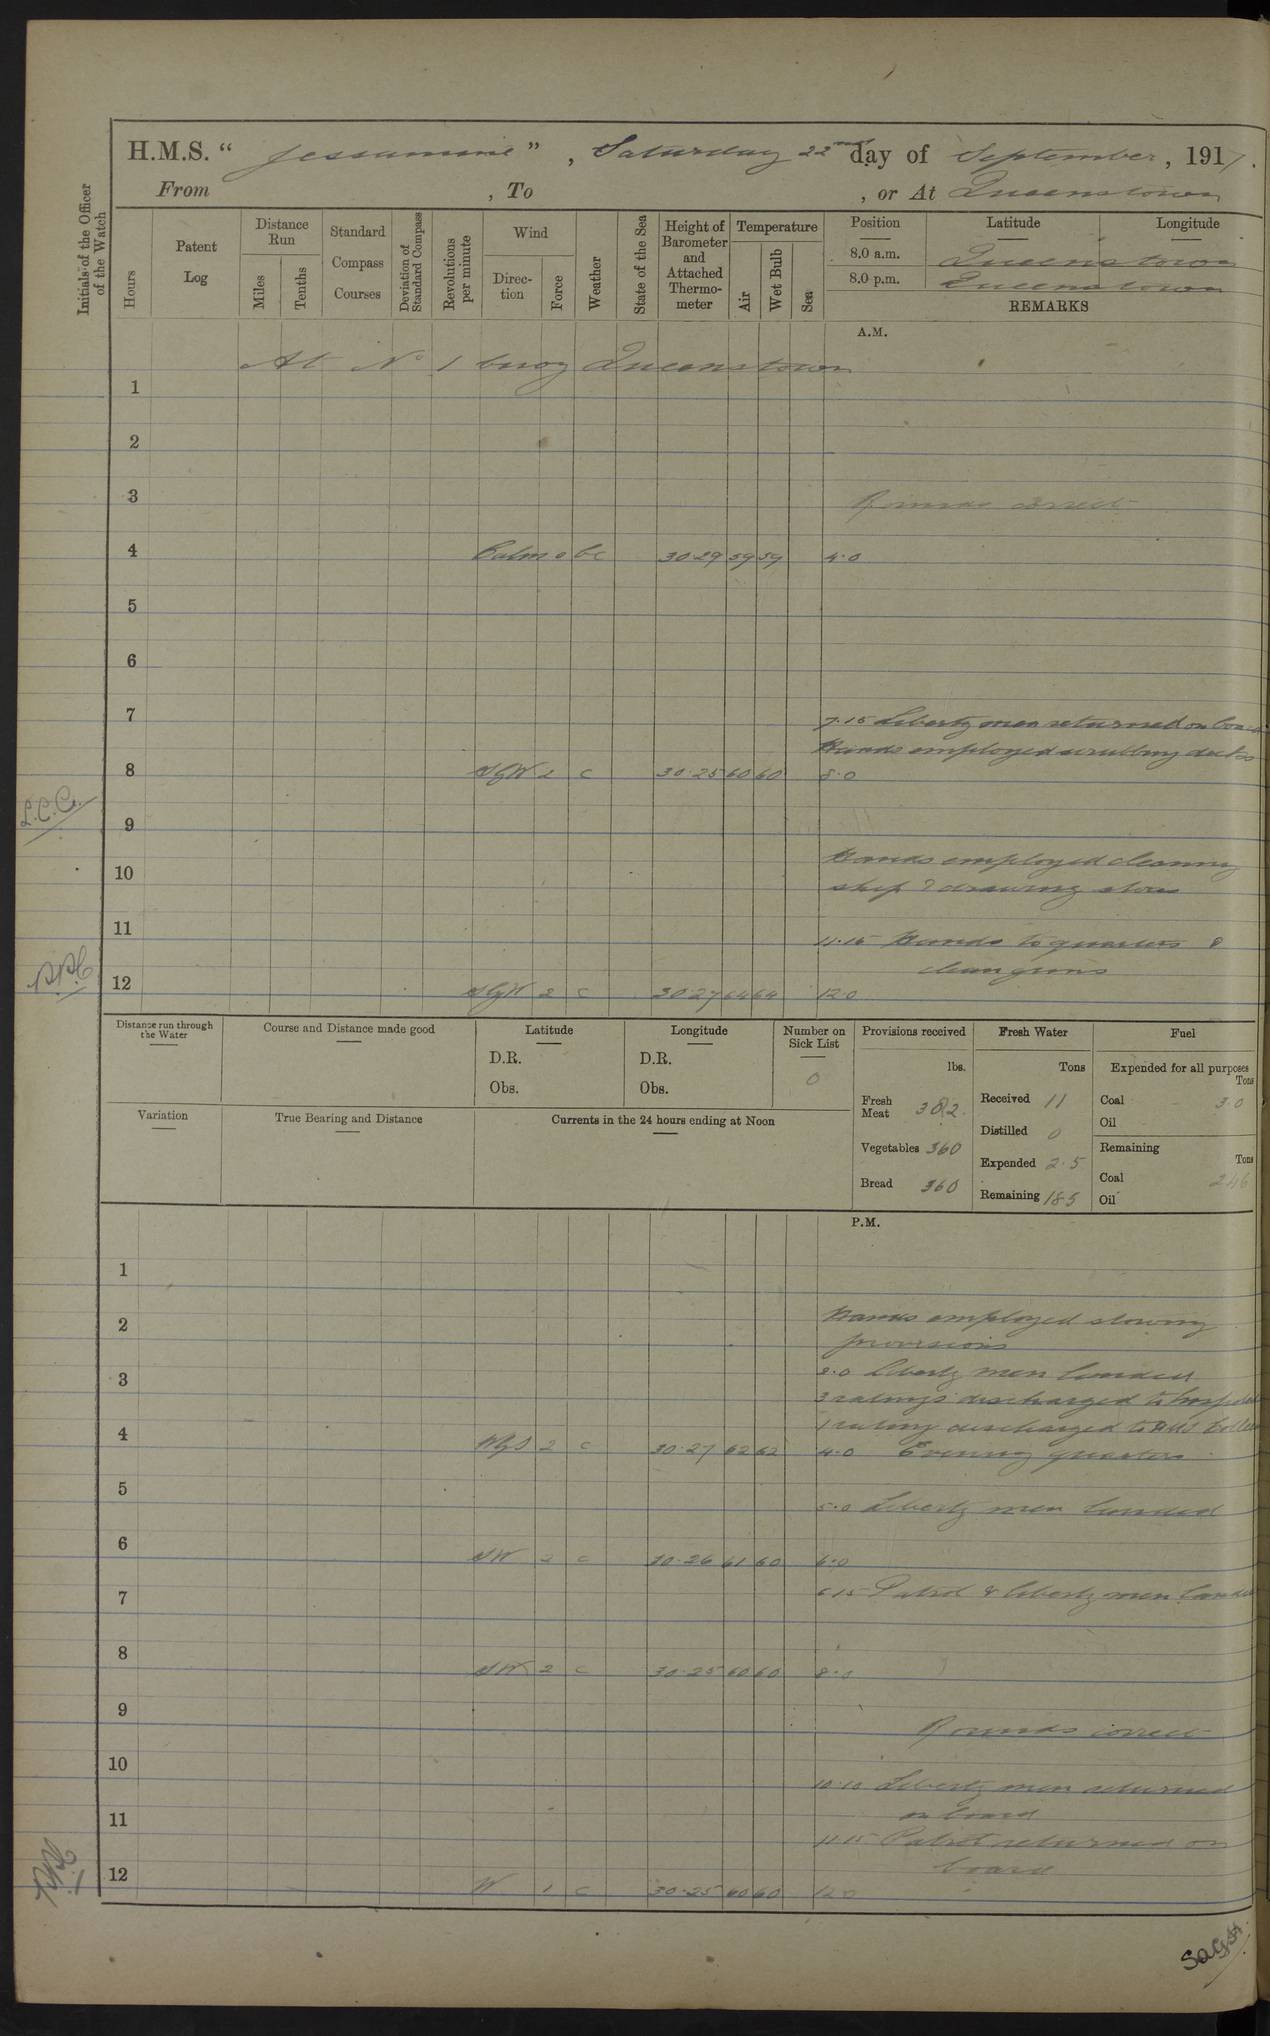 H.M.S. " Jessamine " , Saturday 22nd day of September , 1917 .
From , To , or At Queenstown
Initials of the Officer of the Watch
Hours
Patent Log
Distance Run
Miles
Tenths
Standard Compass Courses
Deviation of Standard Compass
Revolutions per minute
Wind
Direction
Force
Weather
State of the Sea
Height of Barometer and Attached Thermometer
Temperature
Air
Wet Bulb
Sea
Position Latitude Longitude
8.0 a.m. Queenstown
8.0 p.m. Queenstown
REMARKS
A.M.
At No 1 buoy Queenstown
1
2
3 Rounds correct
4 Calm 0 bc 30.29 59 59 4.0
5
6
7 7.15 Liberty men returned on board
Hands employed scrubbing decks
8 SWW 2 c 30.25 60 60 8.0
L.C.C.
9
10 Hands employed cleaning
ship & drawing stores
11 11.15 Hands to quarters &
clean guns
12 2 c 30.27 64 64 12.0
Distance run through the Water
Course and Distance made good
Latitude
D.R.
Obs.
Longitude
D.R.
Obs.
Number on Sick List
0
Variation
True Bearing and Distance
Currents in the 24 hours ending at Noon
Provisions received
lbs.
Fresh Meat 382
Vegetables 360
Bread 360
Fresh Water
Tons
Received 11
Distilled 0
Expended 2.5
Remaining 18.5
Fuel
Expended for all purposes
Tons
Coal 3.0
Oil
Remaining
Tons
Coal 246
Oil
P.M.
1
2 Hands employed stowing
provisions
3.0 Liberty men landed
3 3 ratings discharged to hospital
1 rating discharged to HMS
4 WbS 2 c 30.27 62 62 4.0 Evening quarters
5 5.0 Liberty men landed
6 SW 2 c 30.26 61 60 6.0
7 6.15 Patrol & liberty men landed
8 SW 2 c 30.25 60 60 8.0
9 Rounds correct
10 10.10 Liberty men returned
on board
11 11.15 Patrol returned on
board
12 W 1 c 30.25 60 60 12.0